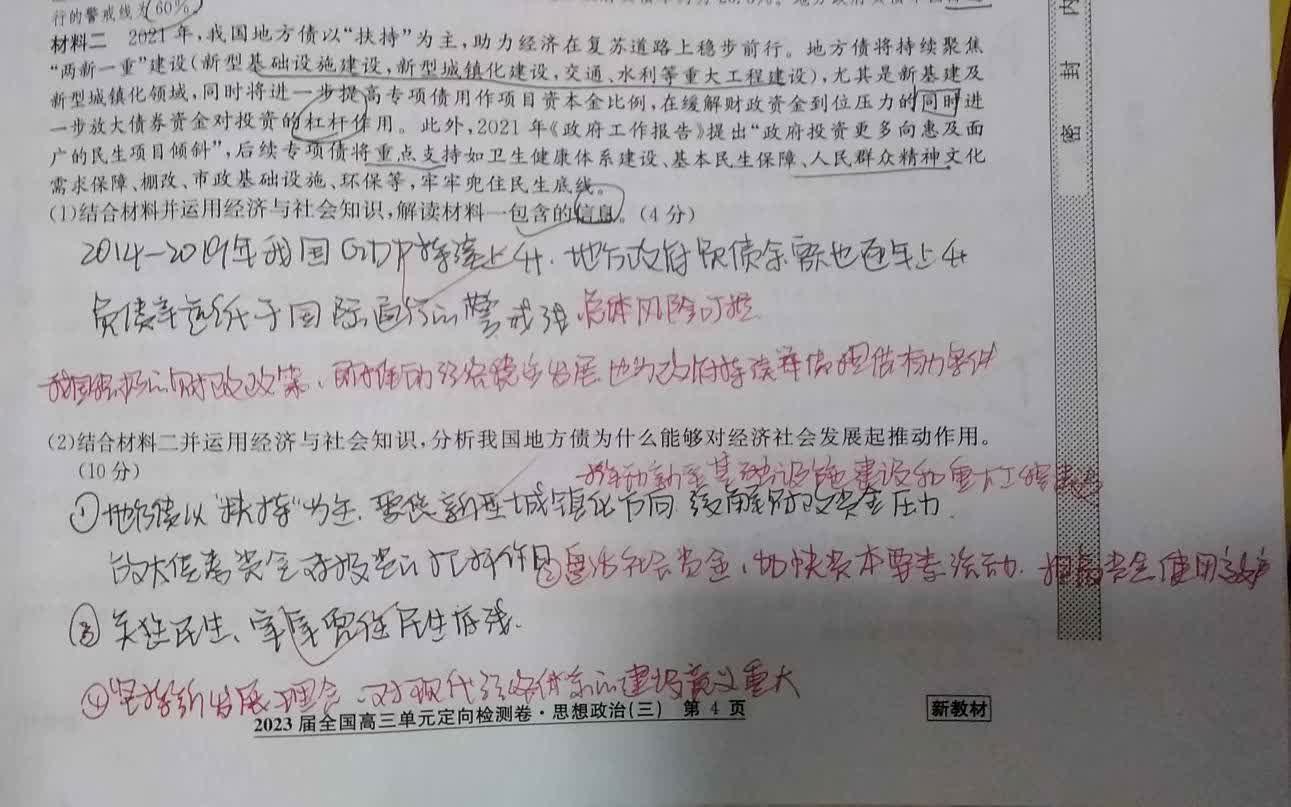 行的警戒线为60%。
材料二 2021年,我国地方债以“扶持”为主,助力经济在复苏道路上稳步前行。地方债将持续聚焦
“两新一重”建设(新型基础设施建设,新型城镇化建设,交通、水利等重大工程建设),尤其是新基建及
新型城镇化领域,同时将进一步提高专项债用作项目资本金比例,在缓解财政资金到位压力的同时进
一步放大债券资金对投资的杠杆作用。此外,2021年《政府工作报告》提出“政府投资更多向惠及面
广的民生项目倾斜”,后续专项债将重点支持如卫生健康体系建设、基本民生保障、人民群众精神文化
需求保障、棚改、市政基础设施、环保等,牢牢兜住民生底线。
(1)结合材料并运用经济与社会知识,解读材料一包含的信息。(4分)
2014-2019年我国GDP持续上升.地方政府负债余额也逐年上升
负债率远低于国际通行的警戒线 总体风险可控
我国积极的财政政策、所推动经济稳步发展 也为政府持续举债提供有力条件
(2)结合材料二并运用经济与社会知识,分析我国地方债为什么能够对经济社会发展起推动作用。
(10分)
推动新型基础设施建设和重大工程建设
①地方债以“扶持”为主.聚焦新型城镇化方向 缓解财政资金压力.
放大债券资金对投资的杠杆作用 ②盘活社会资金,加快资本要素流动.提高资金使用效率
③关注民生、牢牢兜住民生底线.
④坚持新发展理念、对现代经济体系的建设意义重大
2023届全国高三单元定向检测卷·思想政治(三) 第4页
新教材
内
封
密